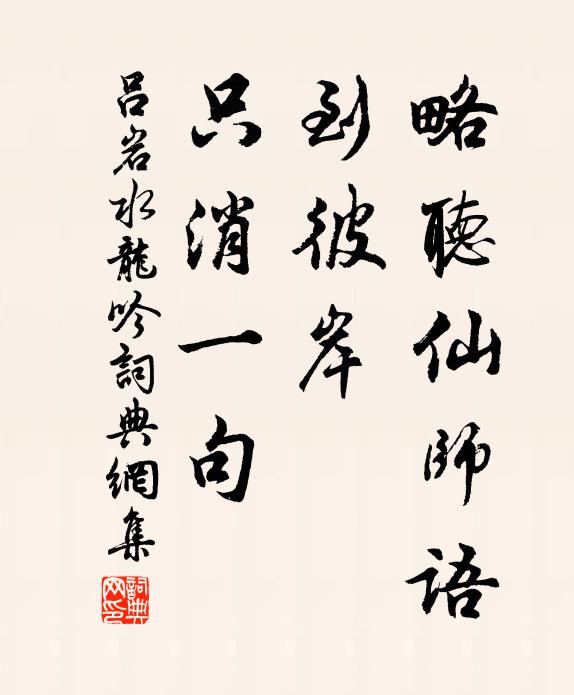 略聽仙師語
到彼岸
只消一句
吕岩水龍吟詞典網集
詞典网印